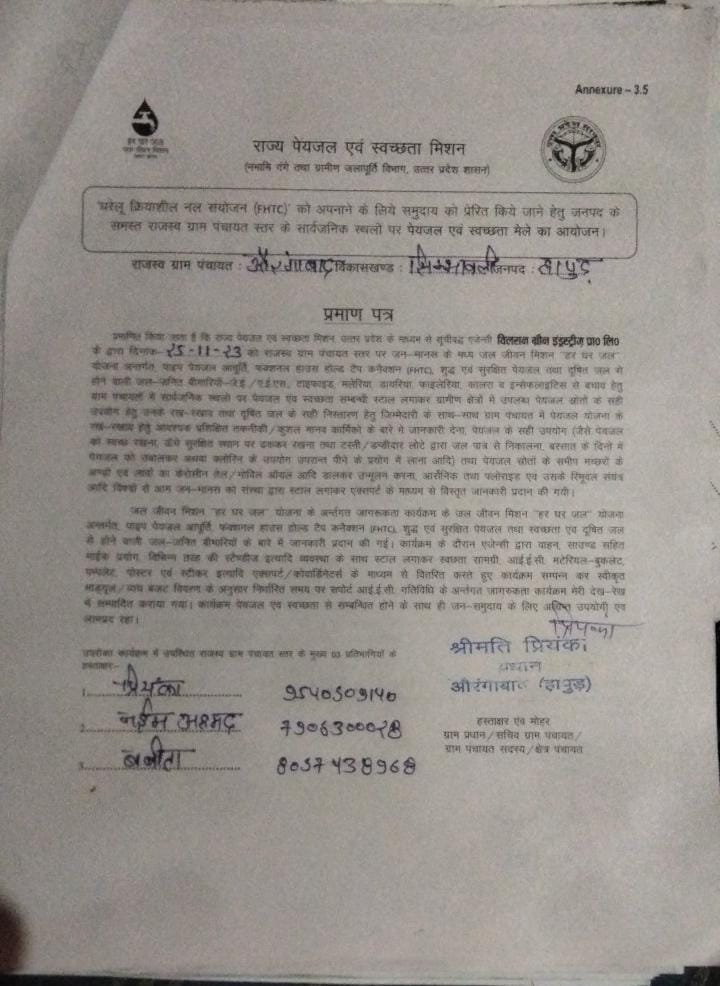 Annexure – 3.5
हर घर जल
जल जीवन मिशन
राज्य पेयजल एवं स्वच्छता मिशन
(नमामि गंगे तथा ग्रामीण जलापूर्ति विभाग, उत्तर प्रदेश शासन)
'घरेलू क्रियाशील नल संयोजन (FHTC)' को अपनाने के लिये समुदाय को प्रेरित किये जाने हेतु जनपद के
समस्त राजस्व ग्राम पंचायत स्तर के सार्वजनिक स्थलों पर पेयजल एवं स्वच्छता मेले का आयोजन।
राजस्व ग्राम पंचायत : औरंगाबाद विकासखण्ड : सिम्भावली जनपद : हापुड़
प्रमाण पत्र
प्रमाणित किया जाता है कि राज्य पेयजल एवं स्वच्छता मिशन, उत्तर प्रदेश के माध्यम से सूचीबद्ध एजेन्सी विलसन ग्रीन इंडस्ट्रीज प्रा० लि०
के द्वारा दिनांक 25-11-23 को राजस्व ग्राम पंचायत स्तर पर जन–मानस के मध्य जल जीवन मिशन "हर घर जल"
योजना अन्तर्गत, पाइप पेयजल आपूर्ति, फंक्शनल हाउस होल्ड टैप कनेक्शन (FHTC), शुद्ध एवं सुरक्षित पेयजल तथा दूषित जल से
होने वाली जल–जनित बीमारियों–जे.ई./ए.ई.एस., टाइफाइड, मलेरिया, डायरिया, फाइलेरिया, कालरा व इन्सेफलाइटिस से बचाव हेतु
ग्राम पंचायतों में सार्वजनिक स्थलों पर पेयजल एवं स्वच्छता सम्बन्धी स्टाल लगाकर ग्रामीण क्षेत्रों में उपलब्ध पेयजल स्रोतों के सही
उपयोग हेतु उनके रख–रखाव तथा दूषित जल के सही निस्तारण हेतु जिम्मेदारी के साथ–साथ ग्राम पंचायत में पेयजल योजना के
रख–रखाव हेतु आवश्यक प्रशिक्षित तकनीकी/कुशल मानव कार्मिकों के बारे मे जानकारी देना, पेयजल के सही उपयोग (जैसे पेयजल
को स्वच्छ रखना, ऊँचे सुरक्षित स्थान पर ढककर रखना तथा टस्नी/डण्डीदार लोटे द्वारा जल पात्र से निकालना, बरसात के दिनों में
पेयजल को उबालकर अथवा क्लोरिन के उपयोग उपरान्त पीने के प्रयोग में लाना आदि) तथा पेयजल स्रोतों के समीप मच्छरों के
अण्डों एवं लार्वा का केरोसीन तेल/मोबिल ऑयल आदि डालकर उन्मूलन करना, आर्सेनिक तथा फ्लोराइड एवं उसके रिमूवल संयंत्र
आदि विषयों से आम जन–मानस को संस्था द्वारा स्टाल लगाकर एक्सपर्ट के माध्यम से विस्तृत जानकारी प्रदान की गयी।
जल जीवन मिशन "हर घर जल" योजना के अर्न्तगत जागरूकता कार्यक्रम के जल जीवन मिशन "हर घर जल" योजना
अन्तर्गत, पाइप पेयजल आपूर्ति, फंक्शनल हाउस होल्ड टैप कनेक्शन (FHTC), शुद्ध एवं सुरक्षित पेयजल तथा स्वच्छता एवं दूषित जल
से होने वाली जल–जनित बीमारियों के बारे में जानकारी प्रदान की गई। कार्यक्रम के दौरान एजेन्सी द्वारा वाहन, साउण्ड सहित
माईक प्रयोग, विभिन्न तरह की स्टैण्डीज इत्यादि व्यवस्था के साथ स्टाल लगाकर स्वच्छता सामग्री, आई.ई.सी. मटेरियल–बुकलेट,
पम्पलेट, पोस्टर एवं स्टीकर इत्यादि एक्सपर्ट/कोआर्डिनेटर्स के माध्यम से वितरित करते हुए कार्यक्रम सम्पन्न कर स्वीकृत
माड्यूल/व्यय बजट विवरण के अनुसार निर्धारित समय पर सपोर्ट आई.ई.सी. गतिविधि के अर्न्तगत जागरुकता कार्यक्रम मेरी देख–रेख
में सम्पादित कराया गया। कार्यक्रम पेयजल एवं स्वच्छता से सम्बन्धित होने के साथ ही जन–समुदाय के लिए अधिक उपयोगी एवं
लाभप्रद रहा।
प्रियंका
उपरोक्त कार्यक्रम में उपस्थित राजस्व ग्राम पंचायत स्तर के मुख्य 03 प्रतिभागियों के
हस्ताक्षर:–
श्रीमति प्रियंका
प्रधान
औरंगाबाद (हापुड़)
1. प्रियंका 9540509140
2. नईम अहमद 7906300028
3. बबीता 8057438968
हस्ताक्षर एवं मोहर
ग्राम प्रधान/सचिव ग्राम पंचायत/
ग्राम पंचायत सदस्य/क्षेत्र पंचायत